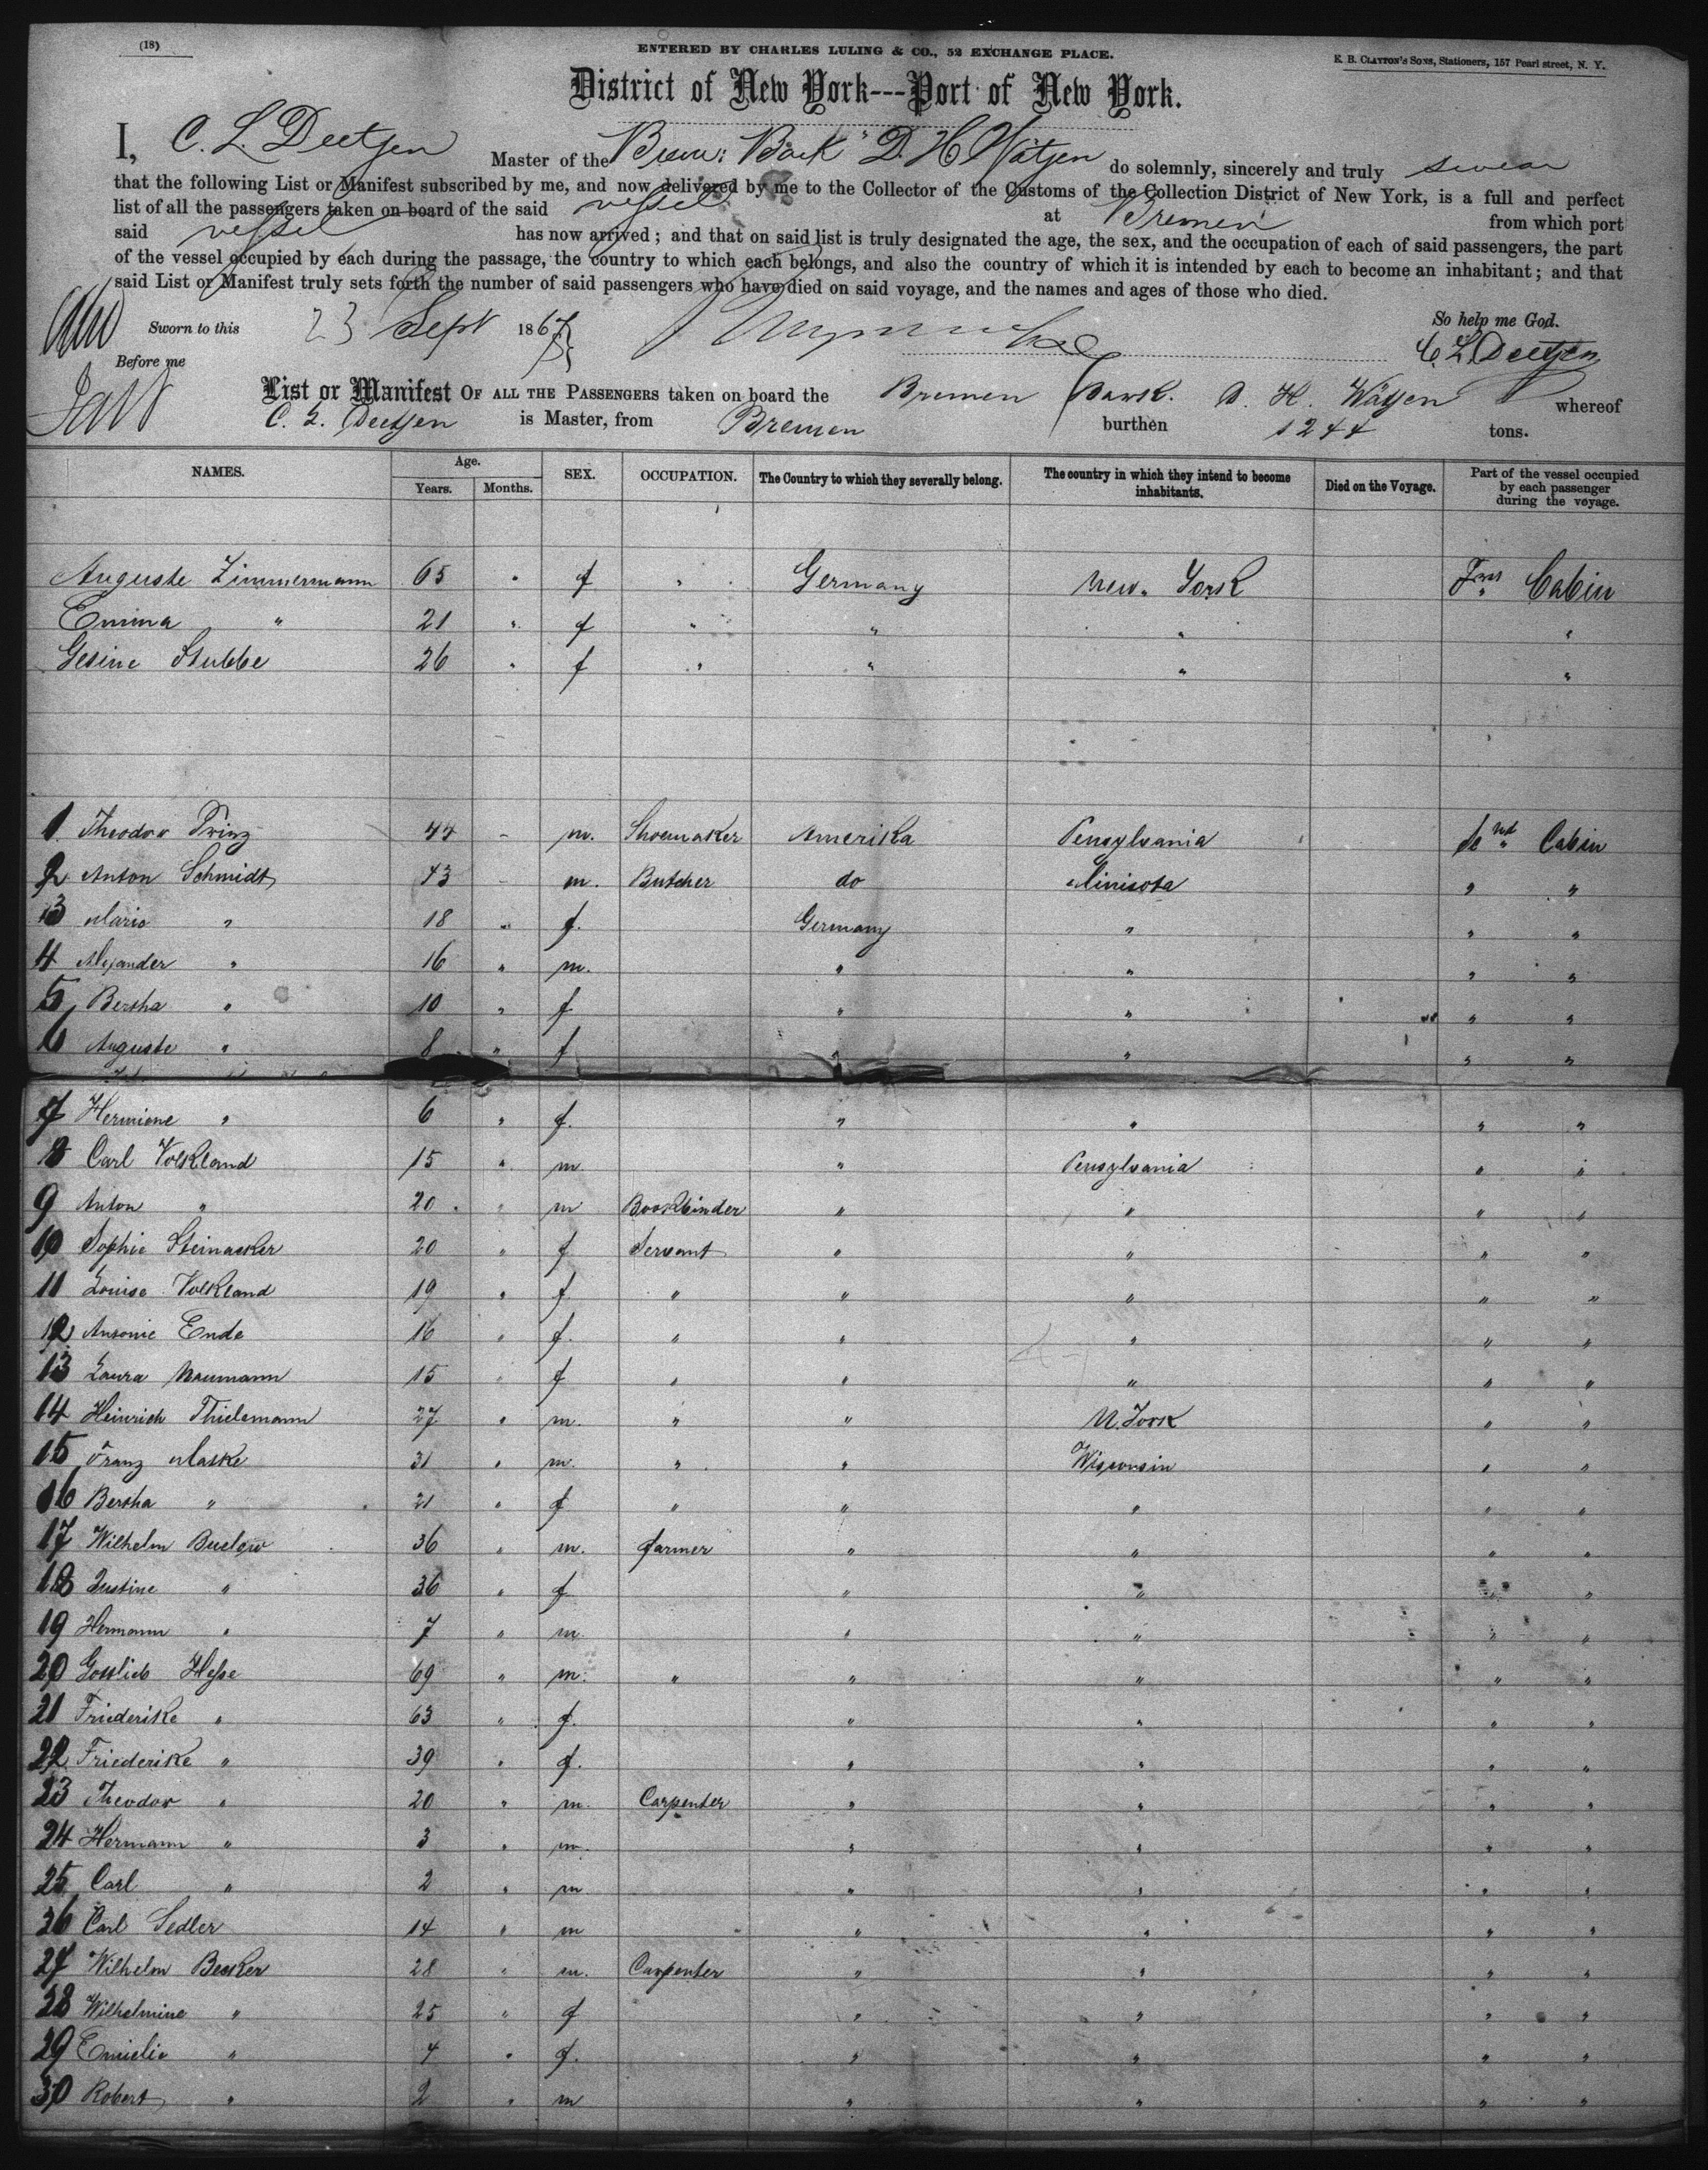 (18)
ENTERED BY CHARLES LULING & CO., 52 EXCHANGE PLACE.
E. B. CLAYTON'S SONS, Stationers, 157 Pearl street, N. Y.
District of New York---Port of New York.
I, C. L. Deetjen Master of the Brem: Bark "D. H. Wätjen do solemnly, sincerely and truly swear
that the following List or Manifest subscribed by me, and now delivered by me to the Collector of the Customs of the Collection District of New York, is a full and perfect
list of all the passengers taken on board of the said vessel at Bremen from which port
said vessel has now arrived; and that on said list is truly designated the age, the sex, and the occupation of each of said passengers, the part
of the vessel occupied by each during the passage, the country to which each belongs, and also the country of which it is intended by each to become an inhabitant; and that
said List or Manifest truly sets forth the number of said passengers who have died on said voyage, and the names and ages of those who died.
Sworn to this 23 Sept 1867 So help me God.
Before me C L Deetjen
List or Manifest OF ALL THE PASSENGERS taken on board the Bremen Bark. D. H. Wätjen whereof
C. L. Deetjen is Master, from Bremen burthen 1244 tons.
NAMES. Age. Years. Months. SEX. OCCUPATION. The Country to which they severally belong. The country in which they intend to become inhabitants. Died on the Voyage. Part of the vessel occupied by each passenger during the voyage.
Auguste Zimmermann 65 " f " Germany New York Cabin
Emma " 21 " f " " " "
Gesine Stubbe 26 " f " " " "
1 Theodor Prinz 44 - m. Shoemaker Amerika Pensylvania Cabin
2 Anton Schmidt 43 - m. Butcher do Minisota " "
3 Marie " 18 " f. Germany " " "
4 Alexander " 16 " m. " " " "
5 Bertha " 10 " f " " " "
6 Auguste " 8 " f " " " "
7 Hermine " 6 " f. " " " "
8 Carl Volkland 15 " m " Pensylvania " "
9 Anton " 20 " m Bookbinder " " " "
10 Sophie Steinacker 20 " f Servant " " " "
11 Louise Volkland 19 " f " " " " "
12 Antonie Ende 16 " f. " " " " "
13 Laura Naumann 15 " f " " " " "
14 Heinrich Thielemann 27 " m. " " N. York " "
15 Franz Maske 31 " m. " " Wisconsin " "
16 Bertha " 21 " f " " " " "
17 Wilhelm Buelow 36 " m. farmer " " " "
18 Justine " 36 " f " " " "
19 Hermann " 7 " m. " " " "
20 Gottlieb Hesse 69 " m. " " " " "
21 Friederike " 63 " f. " " " "
22 Friederike " 39 " f. " " " "
23 Theodor " 20 " m. Carpenter " " " "
24 Hermann " 3 " m. " " " "
25 Carl " 2 " m " " " "
26 Carl Sedler 14 " m " " " "
27 Wilhelm Becker 28 " m. Carpenter " " " "
28 Wilhelmine " 25 " f " " " "
29 Emielie " 4 " f. " " " "
30 Robert " 2 " m " " " "